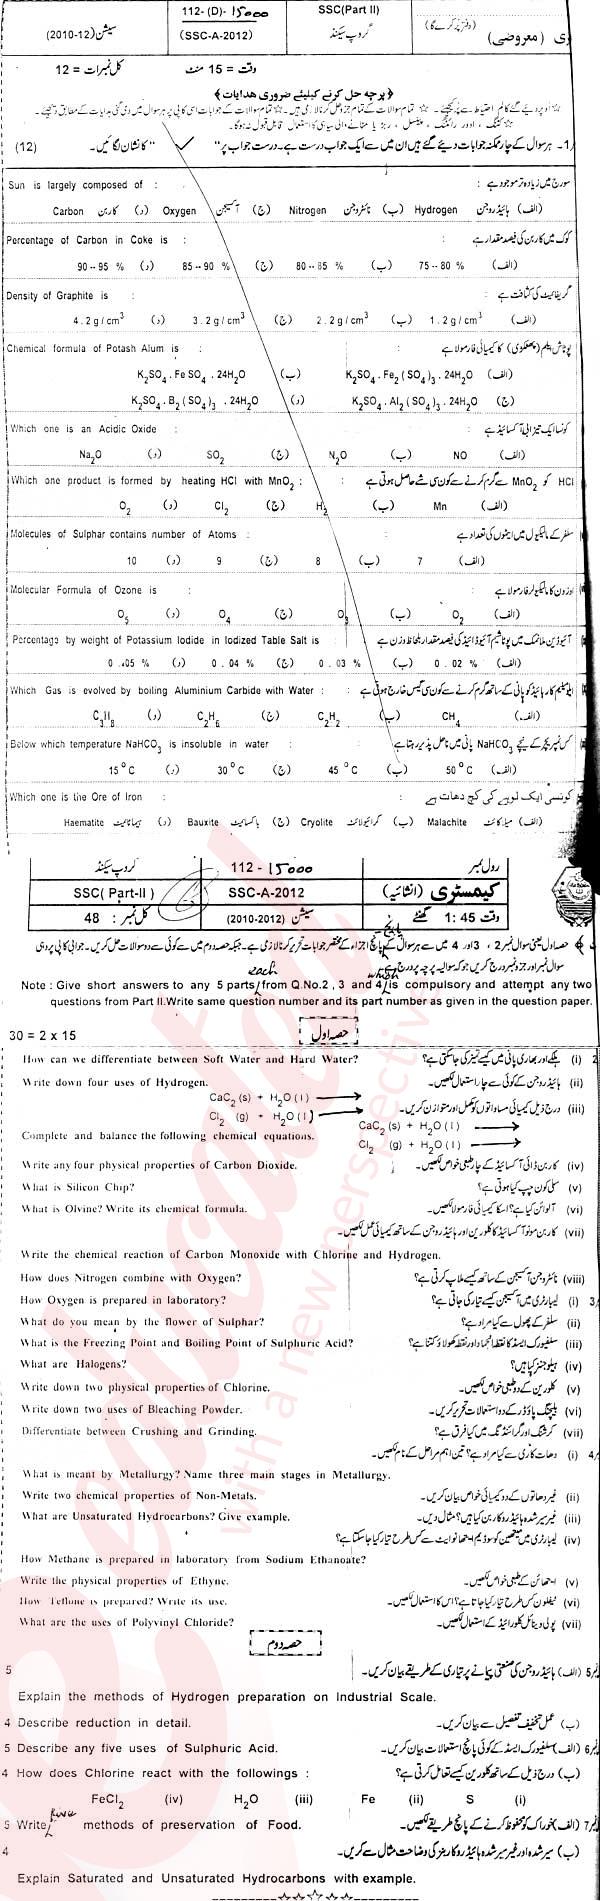 112-(D)-15000 SSC(Part II)
سیشن (2010-12) (SSC-A-2012) گروپ سیکنڈ (معروضی)
کل نمبرات = 12 وقت = 15 منٹ
پرچہ حل کرنے کیلئے ضروری ہدایات
1- ہر سوال کے چار ممکنہ جوابات دیئے گئے ہیں ان میں سے ایک جواب درست ہے۔ درست جواب پر "✓" کا نشان لگائیں۔ (12)
Sun is largely composed of : سورج میں زیادہ تر موجود ہے :
Carbon کاربن (د) Oxygen آکسیجن (ج) Nitrogen نائٹروجن (ب) Hydrogen ہائیڈروجن (الف)
Percentage of Carbon in Coke is : کوک میں کاربن کی فیصد مقدار ہے :
90--95 % (د) 85--90 % (ج) 80--85 % (ب) 75--80 % (الف)
Density of Graphite is : گریفائیٹ کی کثافت ہے :
4.2g/cm³ (د) 3.2g/cm³ (ج) 2.2g/cm³ (ب) 1.2g/cm³ (الف)
Chemical formula of Potash Alum is : پوٹاش ایلم (پھٹکڑی) کا کیمیائی فارمولا ہے
K₂SO₄.FeSO₄.24H₂O (ب) K₂SO₄.Fe₂(SO₄)₃.24H₂O (الف)
K₂SO₄.B₂(SO₄)₃.24H₂O (د) K₂SO₄.Al₂(SO₄)₃.24H₂O (ج)
Which one is an Acidic Oxide : کونسا ایک تیزابی آکسائیڈ ہے
Na₂O (د) SO₂ (ج) N₂O (ب) NO (الف)
Which one product is formed by heating HCl with MnO₂ : HCl کو MnO₂ سے گرم کرنے سے کون سی شے حاصل ہوتی ہے
O₂ (د) Cl₂ (ج) H₂ (ب) Mn (الف)
Molecules of Sulphar contains number of Atoms : سلفر کے مالیکیول میں ایٹموں کی تعداد ہے
10 (د) 9 (ج) 8 (ب) 7 (الف)
Molecular Formula of Ozone is : اوزون کا مالیکیولر فارمولا ہے
O₅ (د) O₄ (ج) O₃ (ب) O₂ (الف)
Percentage by weight of Potassium Iodide in Iodized Table Salt is : آئیوڈین ملا نمک میں پوٹاشیم آئیوڈائیڈ کی فیصد مقدار بلحاظ وزن ہے
0.05 % (د) 0.04 % (ج) 0.03 % (ب) 0.02 % (الف)
Which Gas is evolved by boiling Aluminium Carbide with Water : ایلومینیم کاربائیڈ کو پانی کے ساتھ گرم کرنے سے کون سی گیس خارج ہوتی ہے
C₃H₈ (د) C₂H₆ (ج) C₂H₂ (ب) CH₄ (الف)
Below which temperature NaHCO₃ is insoluble in water : کس ٹمپریچر کے نیچے NaHCO₃ پانی میں ناحل پذیر رہتا ہے
15°C (د) 30°C (ج) 45°C (ب) 50°C (الف)
Which one is the Ore of Iron : کونسی ایک لوہے کی کچ دھات ہے
Haematite ہیماٹائیٹ (د) Bauxite باکسائیٹ (ج) Cryolite کرائیولائٹ (ب) Malachite میلاکائٹ (الف)
گروپ سیکنڈ 112-15000 رول نمبر
SSC(Part-II) SSC-A-2012 کیمسٹری (انشائیہ)
کل نمبر : 48 سیشن (2010-2012) وقت 1:45 گھنٹے
حصہ اول یعنی سوال نمبر 2، 3 اور 4 میں سے ہر سوال کے پانچ اجزاء کے مختصر جوابات تحریر کرنا لازمی ہے۔ جبکہ حصہ دوم میں سے کوئی سے دو سوالات حل کریں۔ جوابی کاپی پر وہی
سوال نمبر اور جزو نمبر درج کریں جو کہ سوالیہ پرچہ پر درج ہے۔
Note : Give short answers to any 5 parts from each Q.No.2 , 3 and 4 which is compulsory and attempt any two
questions from Part II.Write same question number and its part number as given in the question paper.
30 = 2 x 15 حصہ اول
How can we differentiate between Soft Water and Hard Water? ہلکے اور بھاری پانی میں کیسے تمیز کی جا سکتی ہے؟ (i) 2
Write down four uses of Hydrogen. ہائیڈروجن کے کوئی سے چار استعمال لکھیں۔ (ii)
CaC₂(s) + H₂O(l) →
Cl₂ (g) + H₂O(l) → درج ذیل کیمیائی مساواتوں کو مکمل اور متوازن کریں۔ (iii)
CaC₂(s) + H₂O(l) →
Complete and balance the following chemical equations. Cl₂ (g) + H₂O(l) →
Write any four physical properties of Carbon Dioxide. کاربن ڈائی آکسائیڈ کے چار طبعی خواص لکھیں۔ (iv)
What is Silicon Chip? سلی کون چپ کیا ہوتی ہے؟ (v)
What is Olvine? Write its chemical formula. آلوائن کیا ہے؟ اسکا کیمیائی فارمولا لکھیں۔ (vi)
کاربن مونو آکسائیڈ کا کلورین اور ہائیڈروجن کے ساتھ کیمیائی عمل لکھیں۔ (vii)
Write the chemical reaction of Carbon Monoxide with Chlorine and Hydrogen.
How does Nitrogen combine with Oxygen? نائٹروجن آکسیجن کے ساتھ کیسے ملاپ کرتی ہے؟ (viii)
How Oxygen is prepared in laboratory? لیبارٹری میں آکسیجن کیسے تیار کی جاتی ہے؟ (i) 3
What do you mean by the flower of Sulphar? سلفر کے پھول سے کیا مراد ہے؟ (ii)
What is the Freezing Point and Boiling Point of Sulphuric Acid? سلفیورک ایسڈ کا نقطہ انجماد اور نقطہ کھولاؤ کتنا ہے؟ (iii)
What are Halogens? ہیلوجنز کیا ہیں؟ (iv)
Write down two physical properties of Chlorine. کلورین کے دو طبعی خواص لکھیں۔ (v)
Write down two uses of Bleaching Powder. بلیچنگ پاؤڈر کے دو استعمالات تحریر کریں۔ (vi)
Differentiate between Crushing and Grinding. کرشنگ اور گرائنڈنگ میں کیا فرق ہے؟ (vii)
دھات کاری سے کیا مراد ہے؟ تین اہم مراحل کے نام لکھیں۔ (i) 4
What is meant by Metallurgy? Name three main stages in Metallurgy.
Write two chemical properties of Non-Metals. غیر دھاتوں کے دو کیمیائی خواص بیان کریں۔ (ii)
What are Unsaturated Hydrocarbons? Give example. غیر سیر شدہ ہائیڈرو کاربن کیا ہیں؟ مثال دیں۔ (iii)
لیبارٹری میں میتھین کو سوڈیم ایتھانوایٹ سے کس طرح تیار کیا جا سکتا ہے؟ (iv)
How Methane is prepared in laboratory from Sodium Ethanoate?
Write the physical properties of Ethyne. ایتھائن کے طبعی خواص لکھیں۔ (v)
How Teflone is prepared? Write its use. ٹیفلون کس طرح تیار کیا جاتا ہے؟ اس کا استعمال لکھیں۔ (vi)
What are the uses of Polyvinyl Chloride? پولی وینائل کلورائیڈ کے استعمال لکھیں۔ (vii)
حصہ دوم
5 ہائیڈروجن کی صنعتی پیمانے پر تیاری کے طریقے بیان کریں۔ (الف) نمبر 5
Explain the methods of Hydrogen preparation on Industrial Scale.
4 Describe reduction in detail. عمل تخفیف تفصیل سے بیان کریں۔ (ب)
5 Describe any five uses of Sulphuric Acid. سلفیورک ایسڈ کے کوئی پانچ استعمالات بیان کریں۔ (الف) نمبر 6
4 How does Chlorine react with the followings : درج ذیل کے ساتھ کلورین کیسے تعامل کرتی ہے؟ (ب)
FeCl₂ (iv) H₂O (iii) Fe (ii) S (i)
5 Write five methods of preservation of Food. خوراک کو محفوظ کرنے کے پانچ طریقے لکھیں۔ (الف) نمبر 7
4 سیر شدہ اور غیر سیر شدہ ہائیڈرو کاربنز کی وضاحت مثال سے کریں۔ (ب)
Explain Saturated and Unsaturated Hydrocarbons with example.